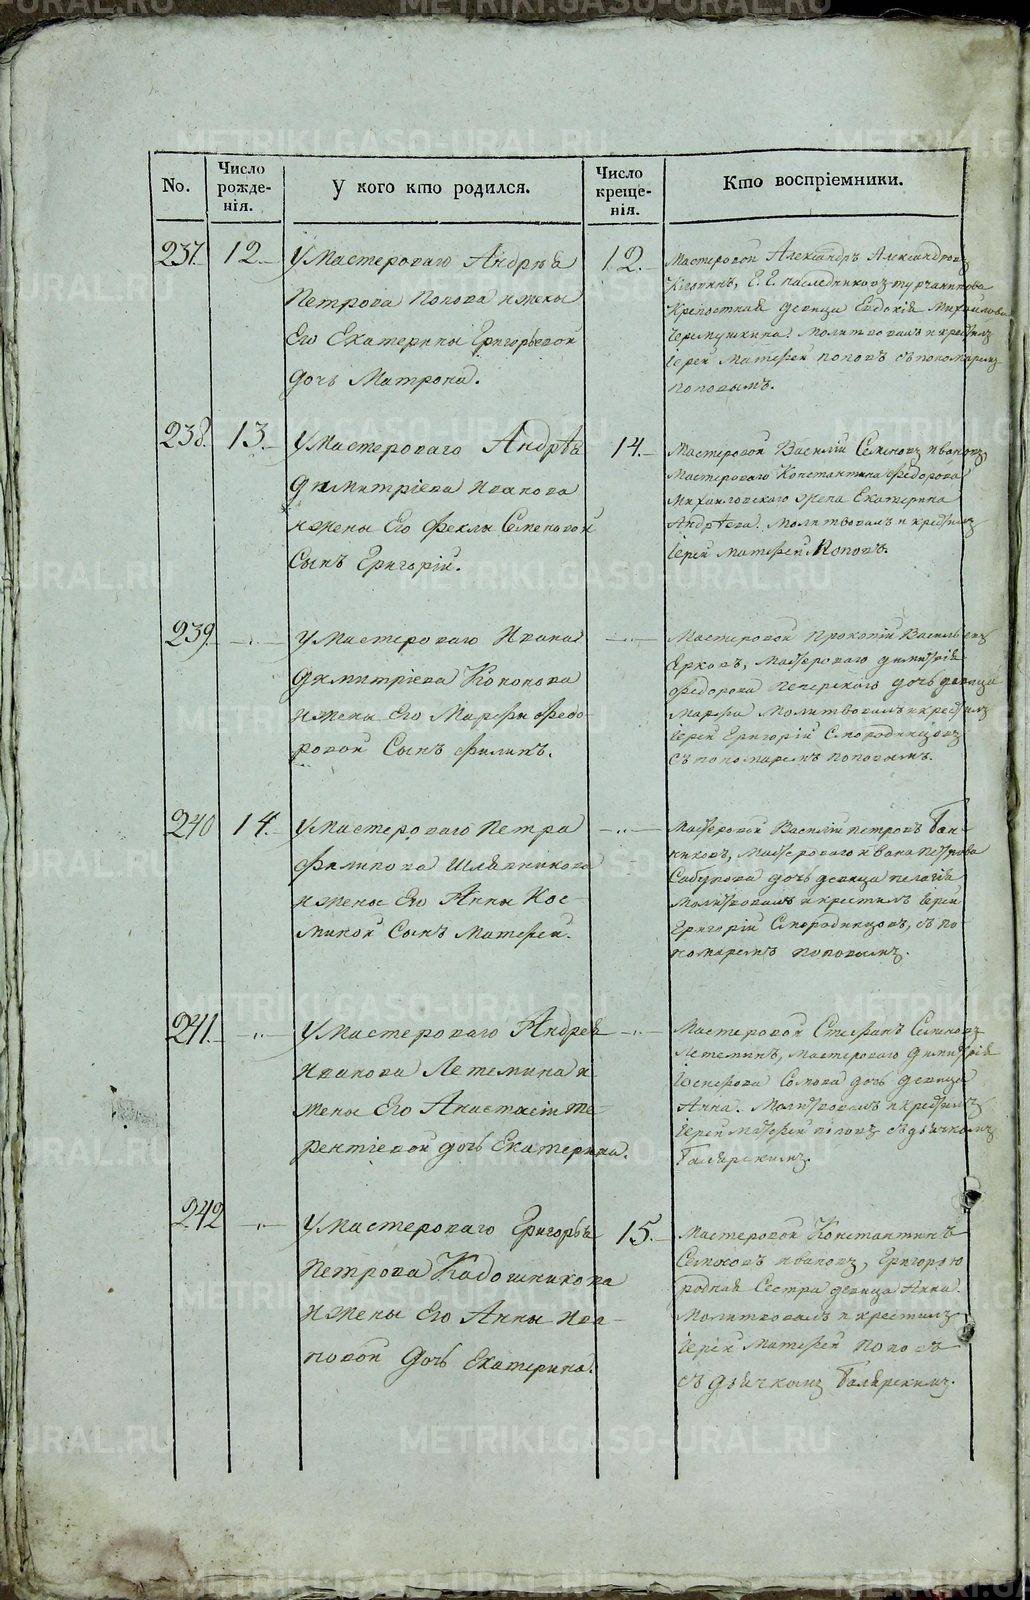 No.
Число рожде-нія.
У кого кто родился.
Число креще-нія.
Кто воспріемники.
237.
12.
У Мастероваго Андрѣя
Петрова Попова и жены
Его Екатерины Григорьевой
дочь Матрона.
12.
Мастеровой Александръ Александровъ
Е. Г. наследниковъ Турчанинова
Крепостная девица Евдокія Михайлова
Черемухина. Молитвовалъ и крестилъ
Іерей Матфей Поповъ съ пономаремъ
Поповымъ.
238.
13.
У Мастероваго Андрѣя
Димитріева Иванова
и жены Его Феклы Семеновой
Сынъ Григорій.
14.
Мастеровой Василій Семеновъ Ивановъ
Мастероваго Константина Федорова
Михайловскаго жена Екатерина
Андрѣева. Молитвовалъ и крестилъ
Іерей Матфей Поповъ.
239.
У Мастероваго Ивана
Димитріева Кононова
и жены Его Марфы Федо-
ровой Сынъ Филипъ.
Мастеровой Прокопій Васильевъ
Ерковъ, Мастероваго Димитрія
Федорова Печерскаго дочь девица
Марфа Молитвовалъ и крестилъ
Іерей Григорій Смородинцовъ
съ пономаремъ Поповымъ.
240
14.
У Мастероваго Петра
Филипова Шляпникова
и жены Его Анны Кос-
миной Сынъ Матфей.
Мастеровой Василій Петровъ Бан-
никовъ, Мастероваго Ивана Петрова
Сабурова дочь девица Пелагія
Молитвовалъ и крестилъ Іерей
Григорій Смородинцовъ, съ по-
номаремъ Поповымъ.
241.
У Мастероваго Андрея
Иванова Летемина и
жены Его Анастасіи Те-
рентіевой дочь Екатерина.
Мастеровой Стефанъ Семеновъ
Летеминъ, Мастероваго Димитрія
Сомова дочь девица
Анна. Молитвовалъ и крестилъ
Іерей Матфей Поповъ съ дьячкомъ
Балярскимъ.
242
У Мастероваго Григорья
Петрова Кадошникова
и жены Его Анны
дочь Екатерина.
15.
Мастеровой Константинъ
Семеновъ Ивановъ, Григорью
родная Сестра девица Анна.
Молитвовалъ и крестилъ
Іерей Матфей Поповъ
съ дьячкомъ Балярскимъ.
METRIKI.GASO-URAL.RU